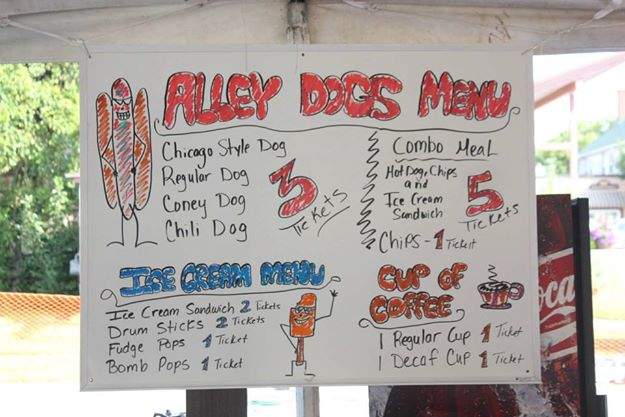 ALLEY DOGS MENU
Chicago Style Dog
Regular Dog
Coney Dog
Chili Dog
3
Tickets
Combo Meal
Hot Dog, Chips
and
Ice Cream
Sandwich
5
Tickets
Chips - 1 Ticket
ICE CREAM MENU
Ice Cream Sandwich 2 Tickets
Drum Sticks 2 Tickets
Fudge Pops 1 Ticket
Bomb Pops 1 Ticket
CUP OF
COFFEE
1 Regular Cup 1 Ticket
1 Decaf Cup 1 Ticket
oca